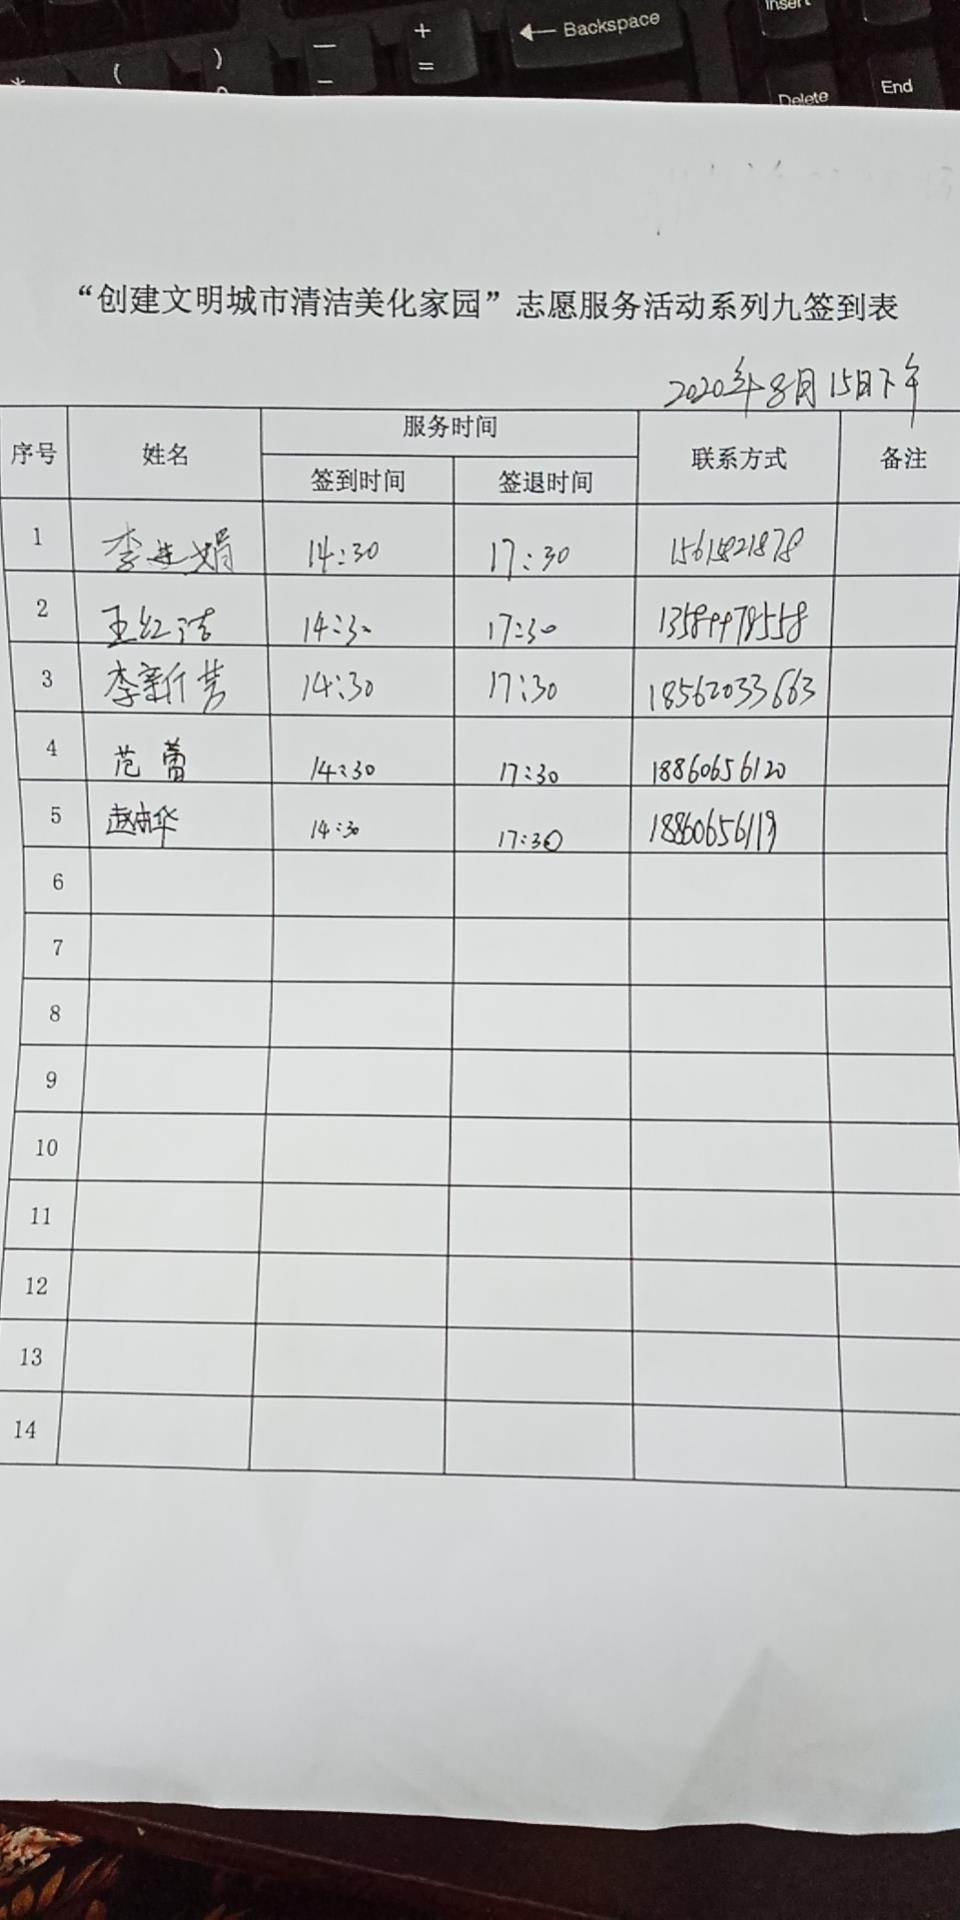 Insert
+ ← Backspace
( ) — - =
* Delete End
“创建文明城市清洁美化家园”志愿服务活动系列九签到表
2020年8月15日下午
序号 姓名 服务时间 联系方式 备注
签到时间 签退时间
1 李 娟 14:30 17:30
2 王红洁 14:30 17:30 13589978558
3 李新 14:30 17:30 18562033663
4 范蕾 14:30 17:30 18860656120
5 赵 华 14:30 17:30 18860656119
6
7
8
9
10
11
12
13
14